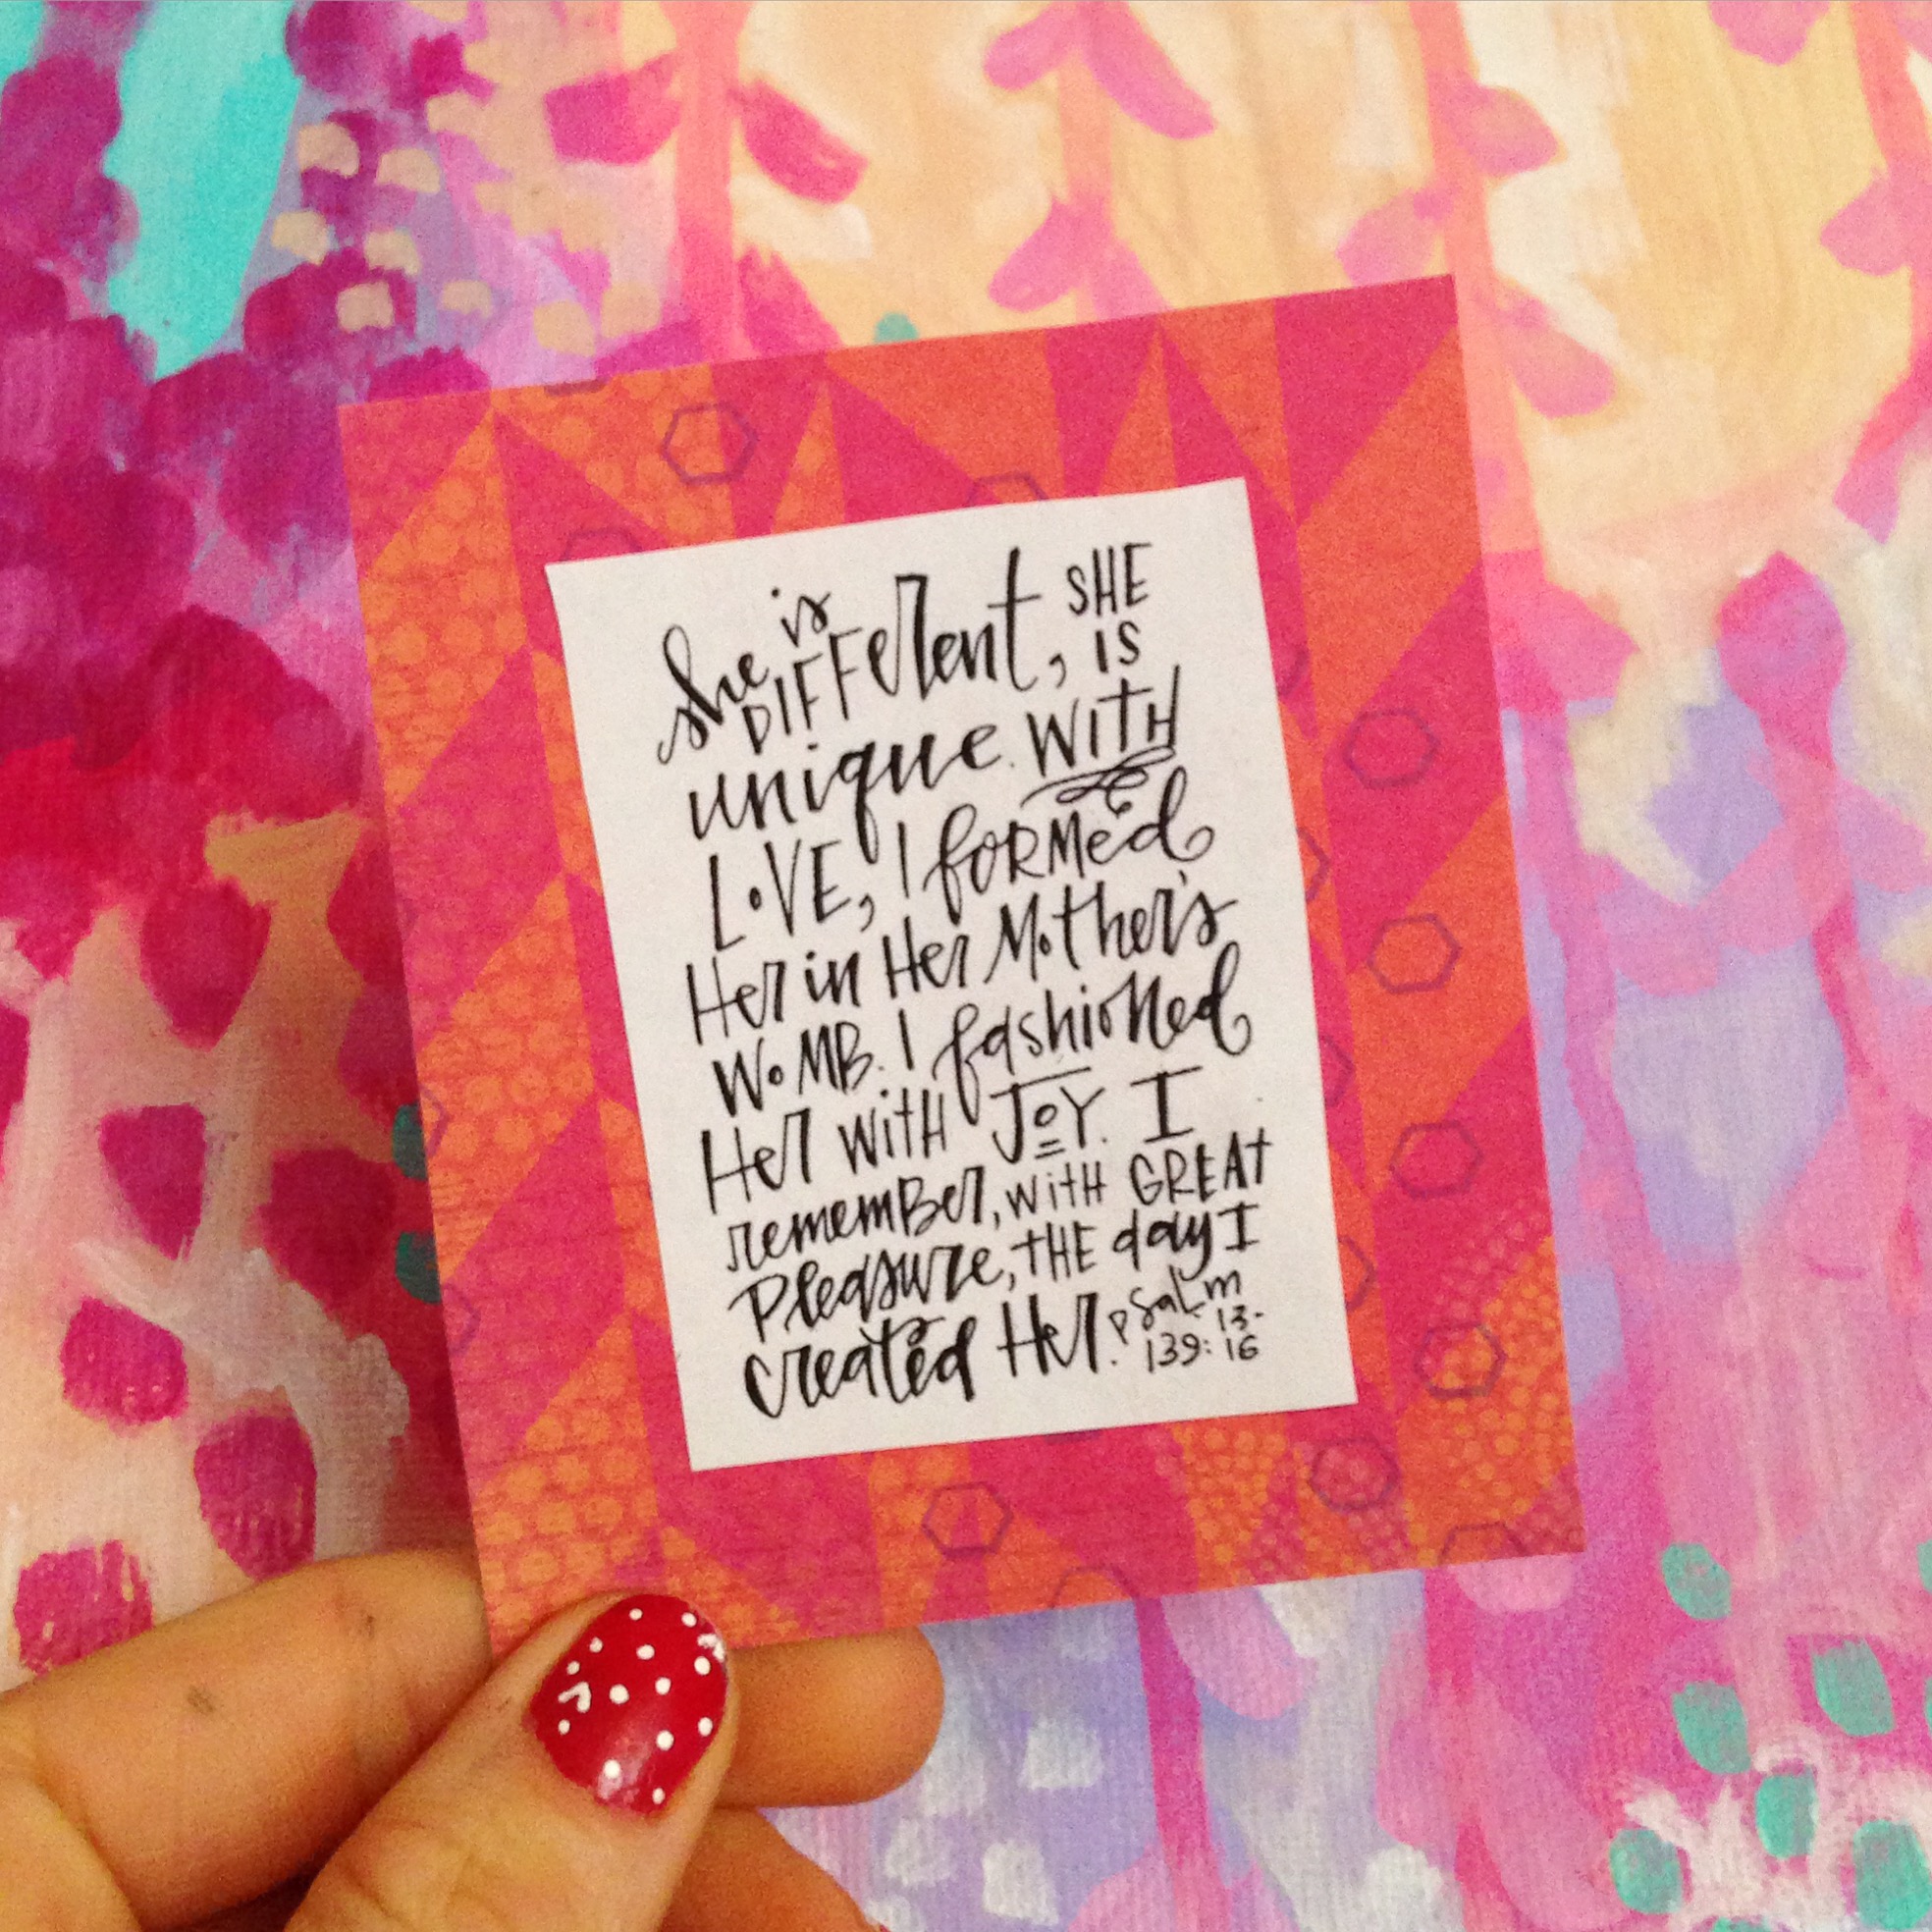 she is DIFFerent, SHE IS
unique. WITH
LOVE, I FORMed
Her in Her Mother's
WOMB. I fashioned
Her WitH JOY. I
rememBer, WitH GREAt
Pleasure, tHE day I
created Her. Psalm
139: 13-16